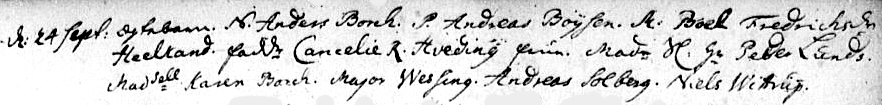 d: 24 Sept: N. Anders Borch. P. Andreas Boÿsen. M. Boel Fredrichsdr
Heeltand. fadd: Cancelie R. Hveding Mad: Sr Peder Lunds.
Madsell Karen Borch. Major Wessing. Andreas Solberg. Niels Wittrup.